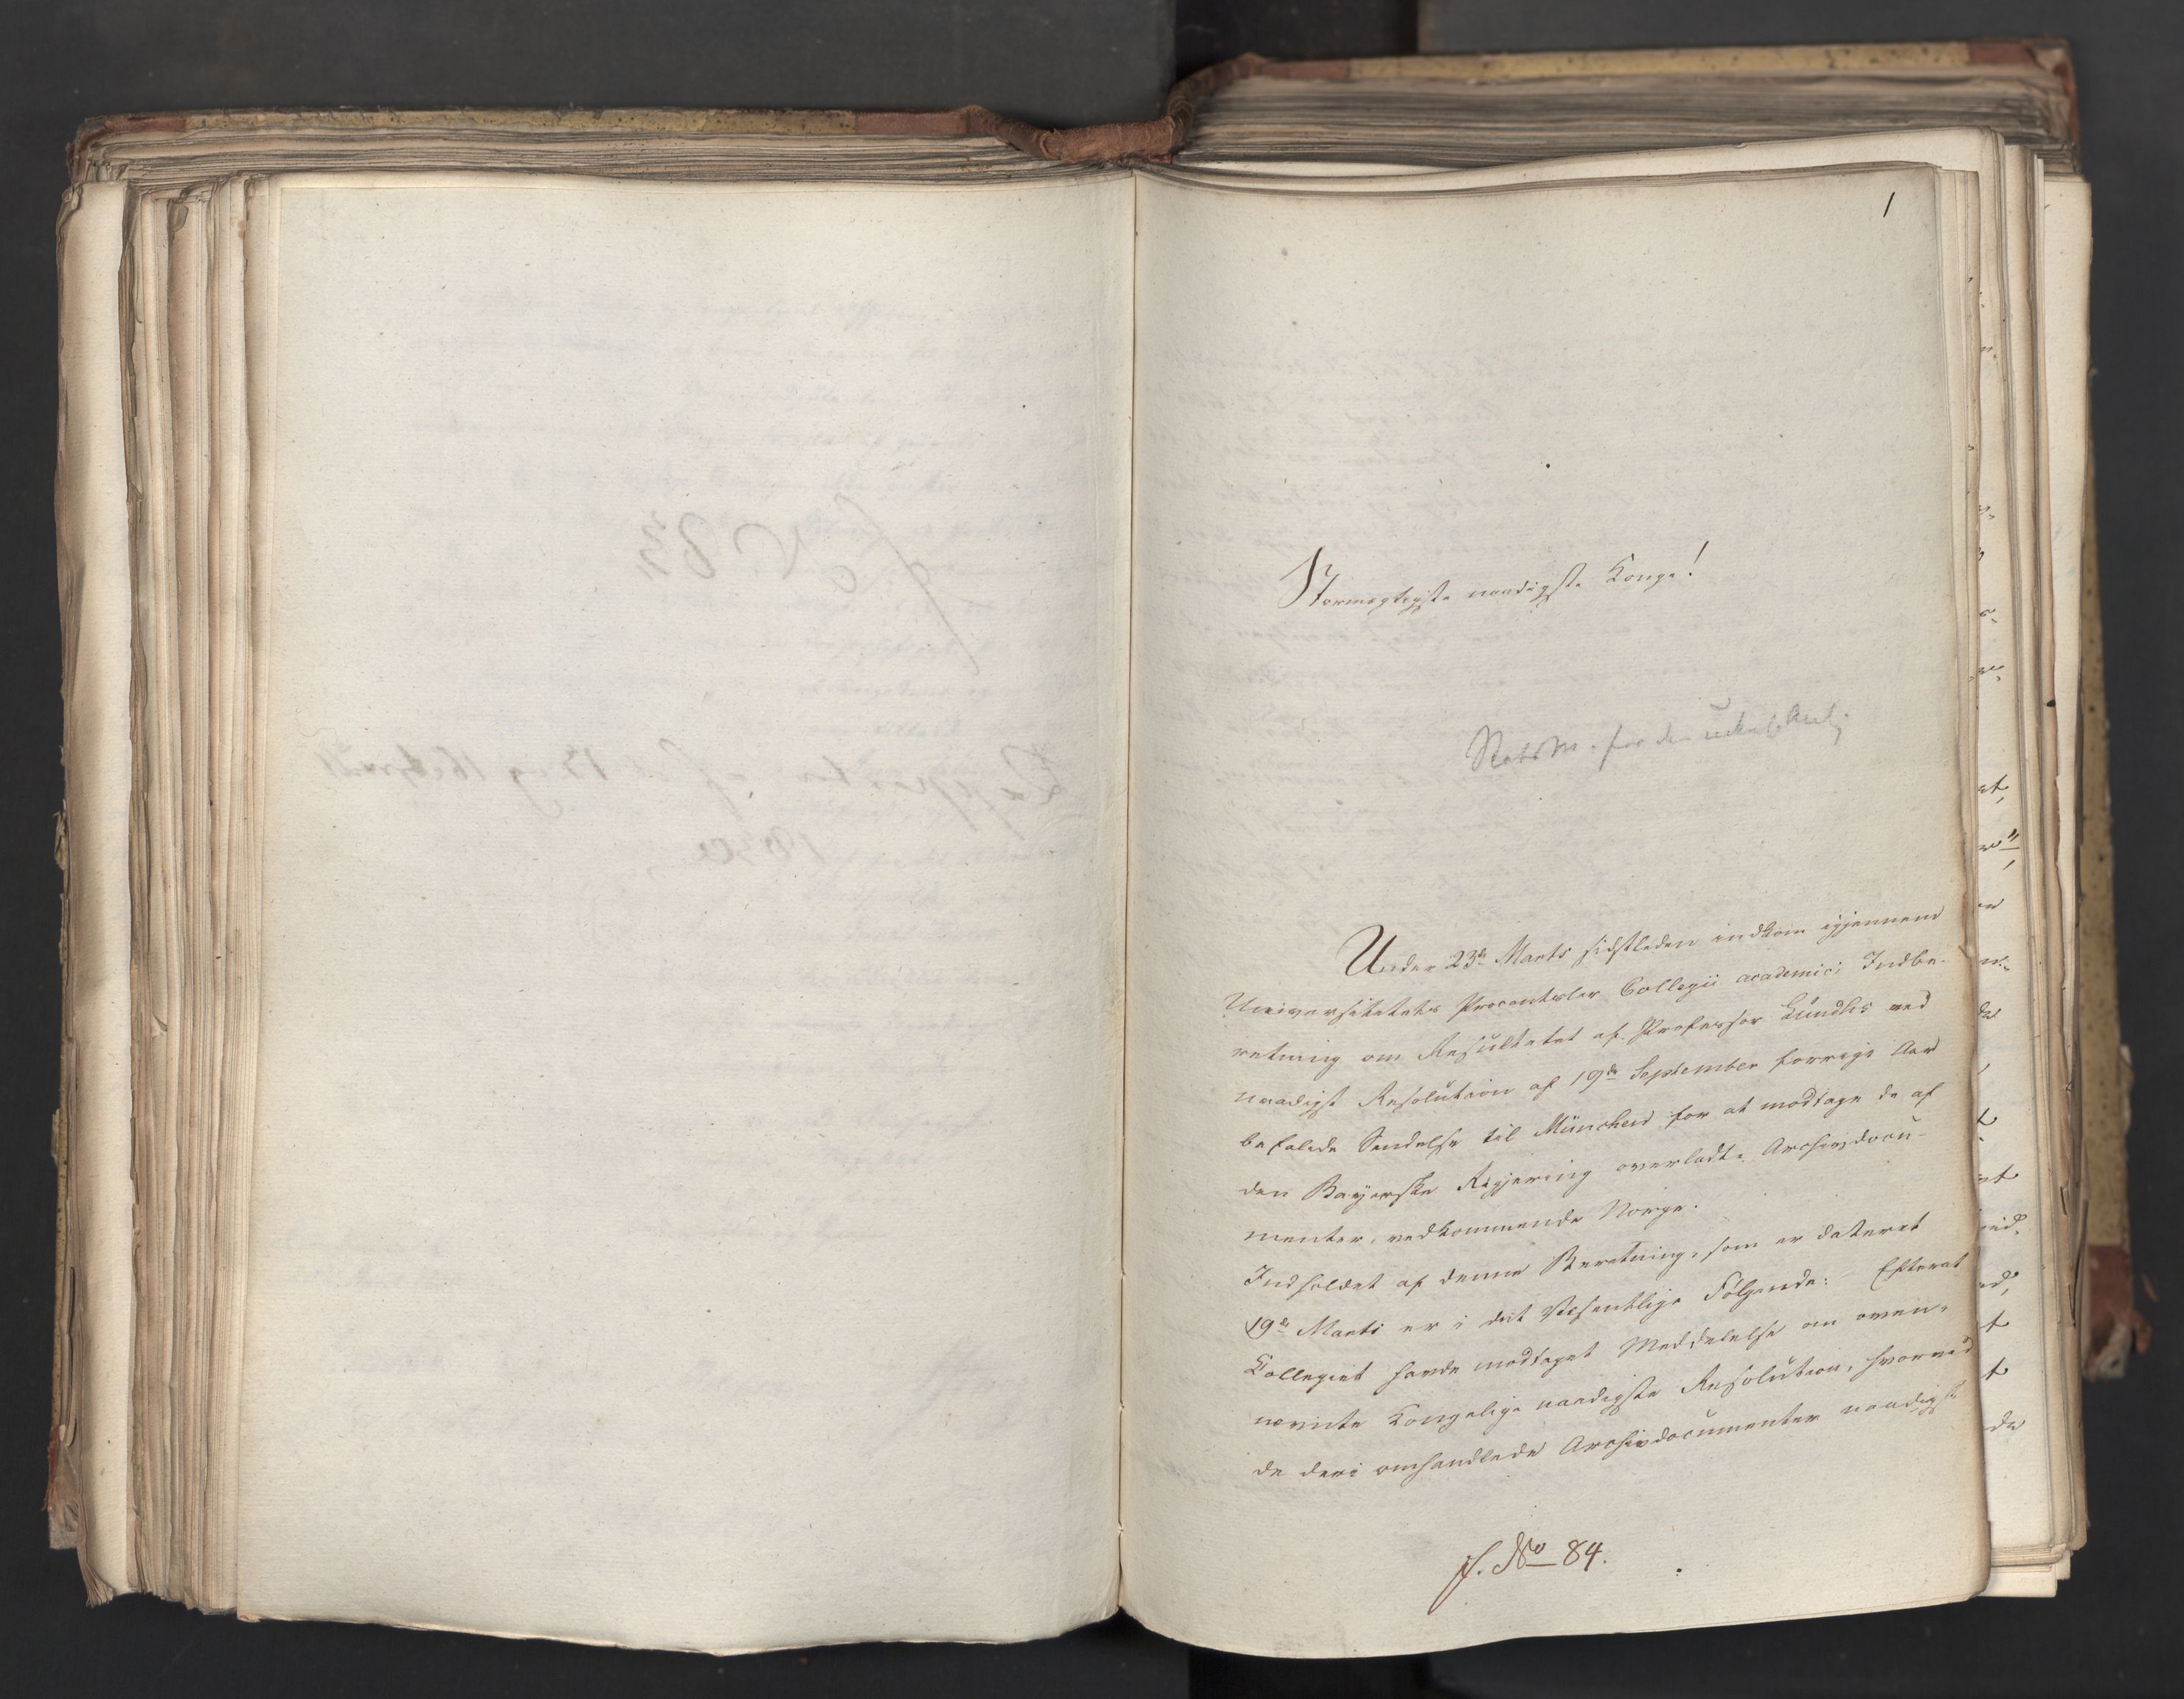 1
Stormægtigste naadigste Konge!
StatsM. for den
Under 23de Marts sidstleden indkom igjennem
Universitetets Procantsler Collegii academici Indbe-
retning om Resultatet af Professor Lundhs ved
naadigst Resolution af 19de September forrige Aar
befalede Sendelse til München for at modtage de af
den Bayerske Regjering overladte Archivdocu-
menter, vedkommende Norge.
Indholdet af denne Beretning, som er dateret
19de Marts er i det Væsentlige Følgende: Efterat
Collegiet havde modtaget Meddelelse om oven-
nævnte Kongelige naadigste Resolution, hvorved
de deri omhandlede Archivdocumenter naadigst
f. No 84.